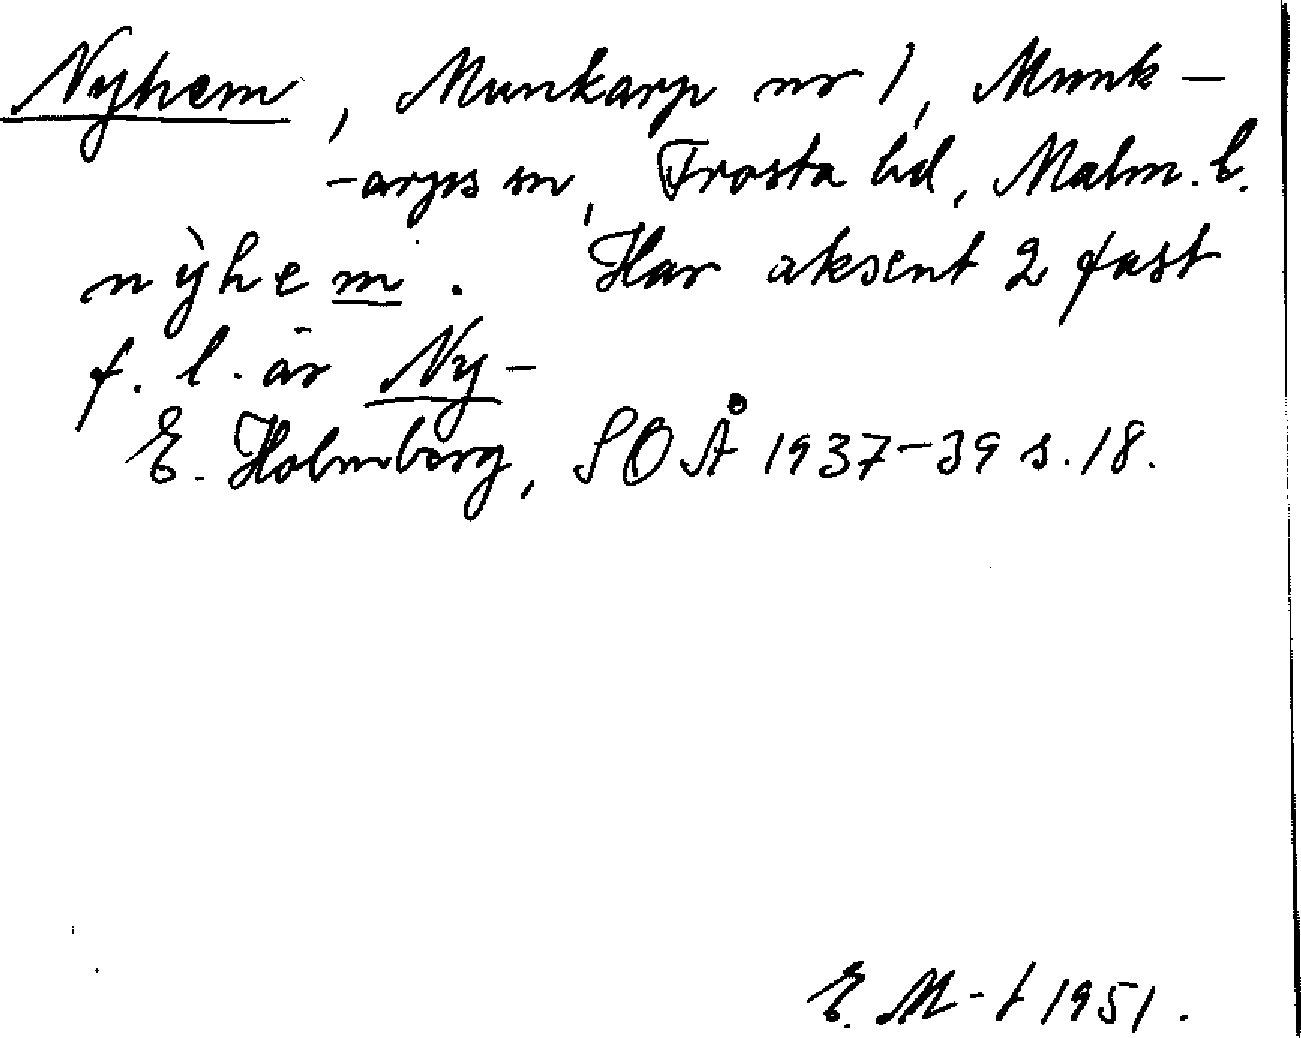 Nyhem, Munkarp nr 1, Munk-
-arps sn, Frosta hd, Malm. l.
nỳhem. Har aksent 2 fast
f. l. är Ny-
E. Holmberg, SOÅ 1937-39 s. 18.
E. M-t 1951.